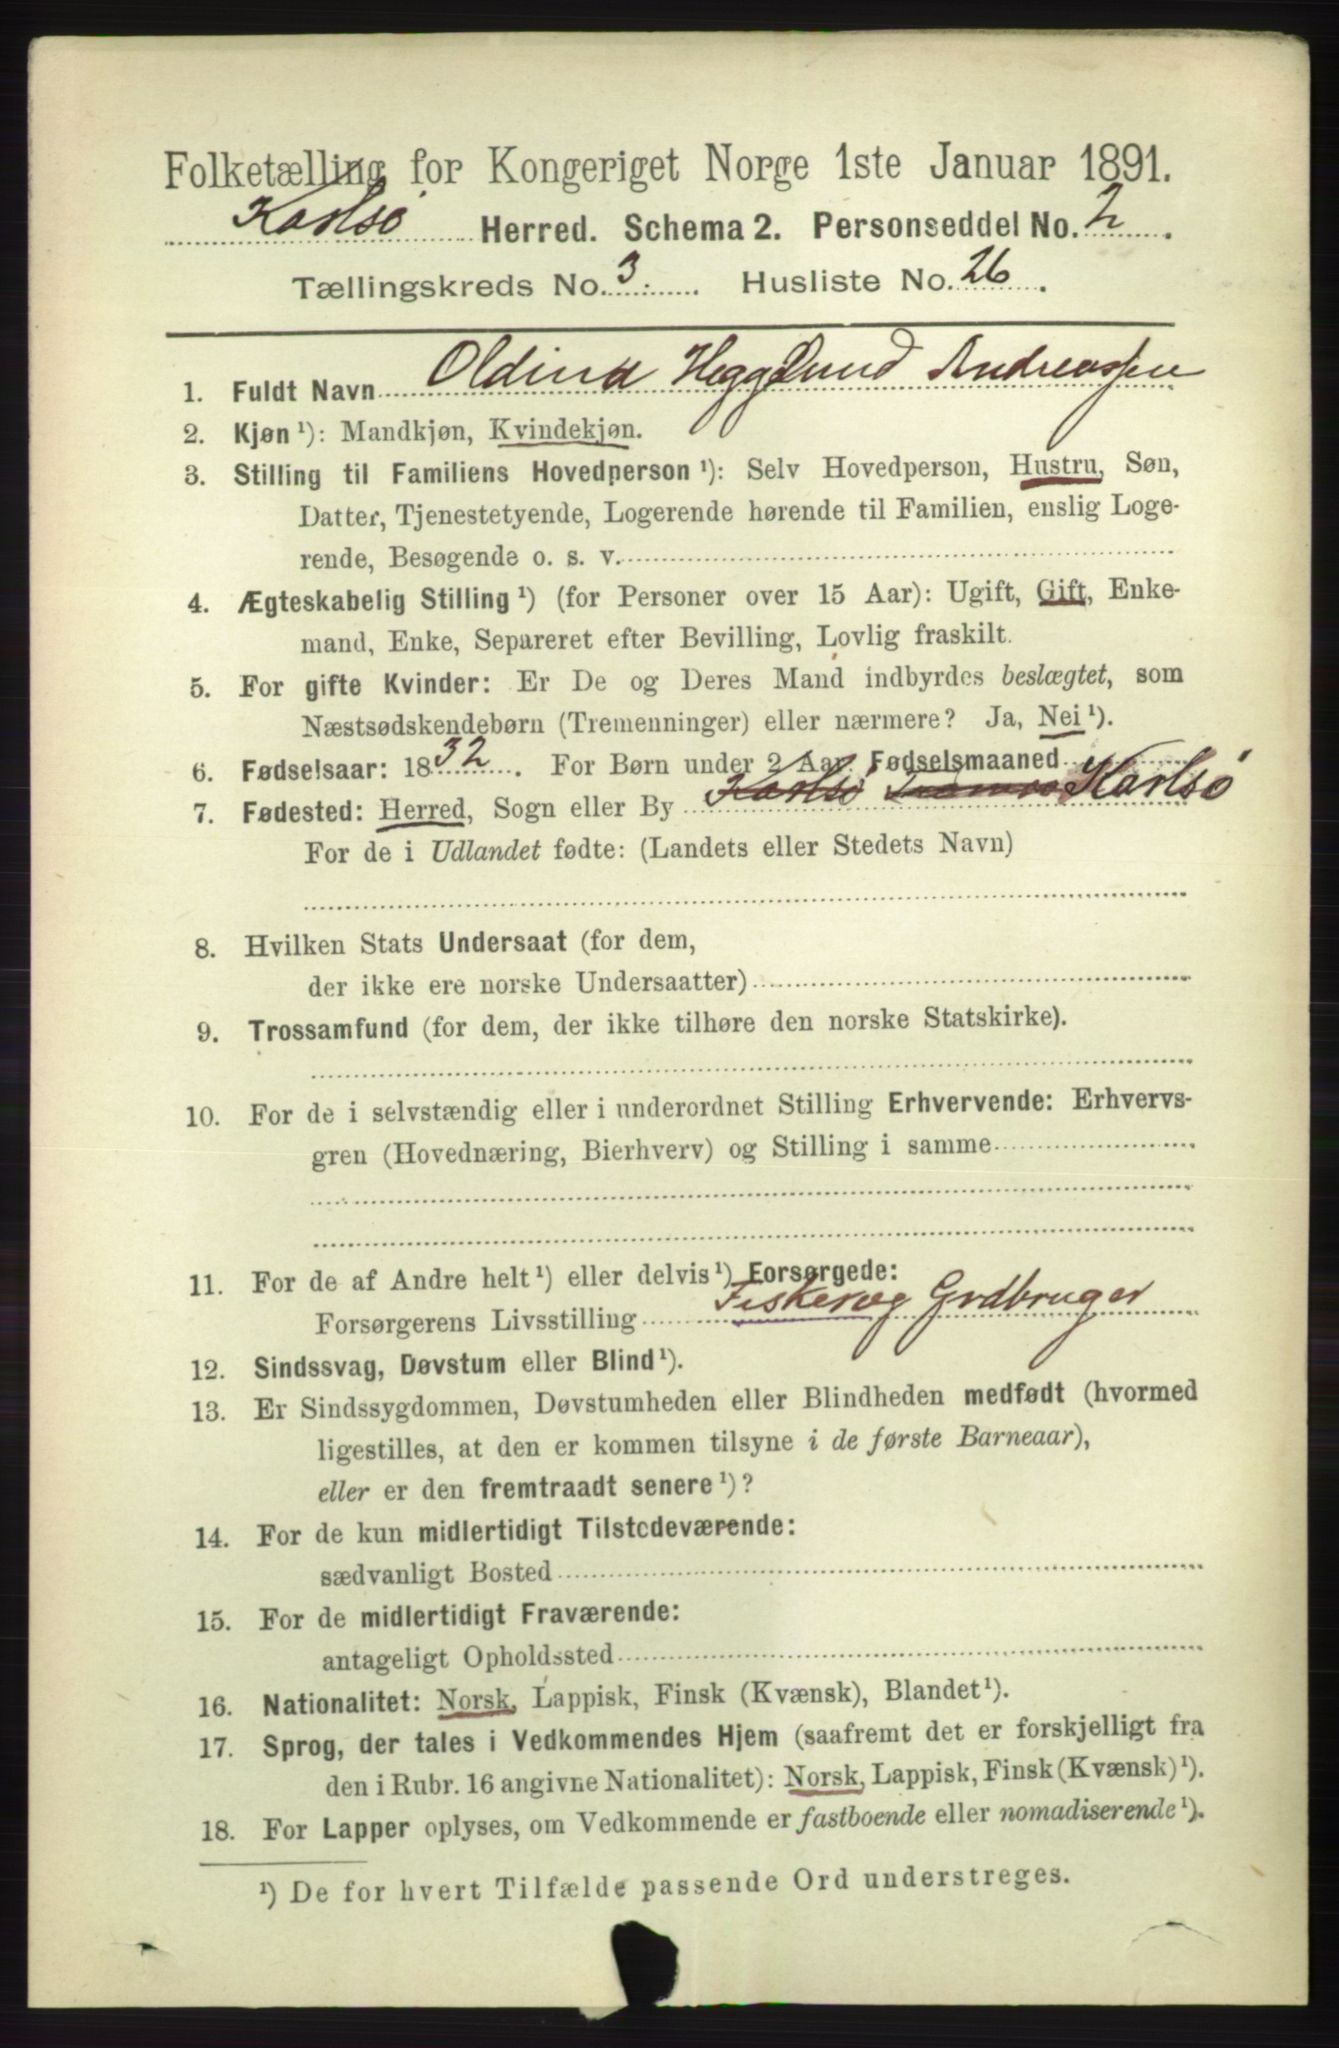 Folketælling for Kongeriget Norge 1ste Januar 1891.
Karlsö Herred. Schema 2. Personseddel No. 2.
Tællingskreds No. 3. Husliste No. 26.
1. Fuldt Navn Oldina Hegglund Andreassen
2. Kjøn ¹): Mandkjøn, Kvindekjøn.
3. Stilling til Familiens Hovedperson ¹): Selv Hovedperson, Hustru, Søn,
Datter, Tjenestetyende, Logerende hørende til Familien, enslig Loge-
rende, Besøgende o. s. v.
4. Ægteskabelig Stilling ¹) (for Personer over 15 Aar): Ugift, Gift, Enke-
mand, Enke, Separeret efter Bevilling, Lovlig fraskilt.
5. For gifte Kvinder: Er De og Deres Mand indbyrdes beslægtet, som
Næstsødskendebørn (Tremenninger) eller nærmere? Ja, Nei ¹).
6. Fødselsaar: 1832. For Børn under 2 Aar Fødselsmaaned
7. Fødested: Herred, Sogn eller By Karlsö Tromsö Karlsö
For de i Udlandet fødte: (Landets eller Stedets Navn)
8. Hvilken Stats Undersaat (for dem,
der ikke ere norske Undersaatter)
9. Trossamfund (for dem, der ikke tilhøre den norske Statskirke).
10. For de i selvstændig eller i underordnet Stilling Erhvervende: Erhvervs-
gren (Hovednæring, Bierhverv) og Stilling i samme
11. For de af Andre helt ¹) eller delvis ¹) Forsørgede:
Forsørgerens Livsstilling Fisker og Grdbruger
12. Sindssvag, Døvstum eller Blind ¹).
13. Er Sindssygdommen, Døvstumheden eller Blindheden medfødt (hvormed
ligestilles, at den er kommen tilsyne i de første Barneaar),
eller er den fremtraadt senere ¹)?
14. For de kun midlertidigt Tilstedeværende:
sædvanligt Bosted
15. For de midlertidigt Fraværende:
antageligt Opholdssted
16. Nationalitet: Norsk, Lappisk, Finsk (Kvænsk), Blandet ¹).
17. Sprog, der tales i Vedkommendes Hjem (saafremt det er forskjelligt fra
den i Rubr. 16 angivne Nationalitet): Norsk, Lappisk, Finsk (Kvænsk) ¹).
18. For Lapper oplyses, om Vedkommende er fastboende eller nomadiserende ¹).
¹) De for hvert Tilfælde passende Ord understreges.